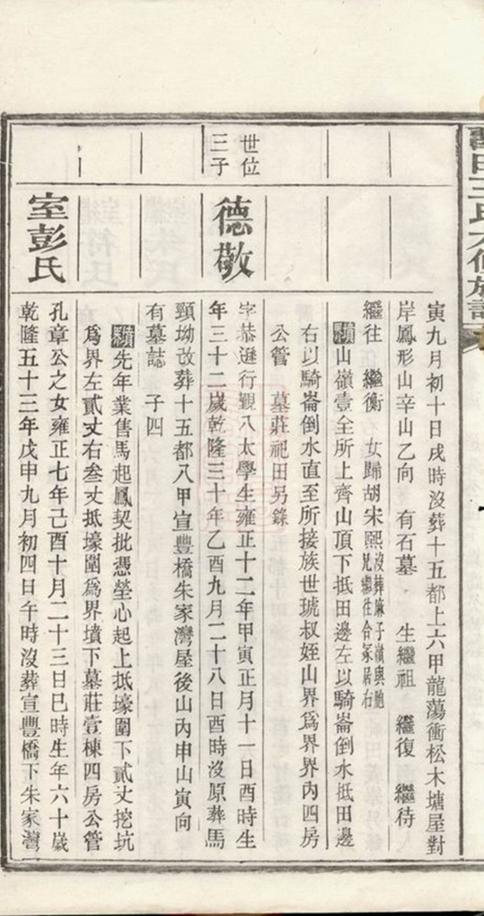 寅九月初十日戌時沒葬十五都上六甲龍蕩衝松木塘屋對
岸鳳形山辛山乙向 有石墓 生繼祖 繼復 繼待
繼往 繼衡 女歸胡宋熙
山嶺壹全所上齊山頂下抵田邊左以騎崙倒水抵田邊
右以騎崙倒水直至所接族世琥叔姪山界為界界內四房
公管 墓莊祀田另錄
世位三子
德敬
字恭遜行觀八太學生雍正十二年甲寅正月十一日酉時生
年三十二歲乾隆三十年乙酉九月二十八日酉時沒原葬馬
頸坳改葬十五都八甲宣豐橋朱家灣屋後山內申山寅向
有墓誌 子四
先年業售馬起鳳契批憑塋心起上抵壕圍下貳丈挖坑
為界左貳丈右叁丈抵壕圍為界墳下墓莊壹棟四房公管
室彭氏
孔章公之女雍正七年己酉十月二十三日巳時生年六十歲
乾隆五十三年戊申九月初四日午時沒葬宣豐橋下朱家灣